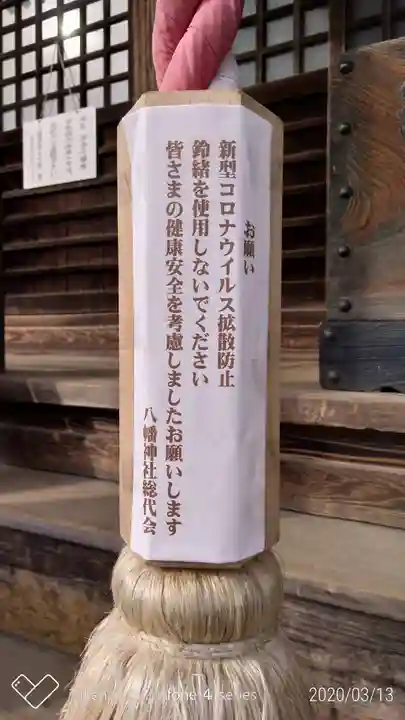 お願い
新型コロナウイルス拡散防止
鈴緒を使用しないでください
皆さまの健康安全を考慮しましたお願いします
八幡神社総代会
2020/03/13